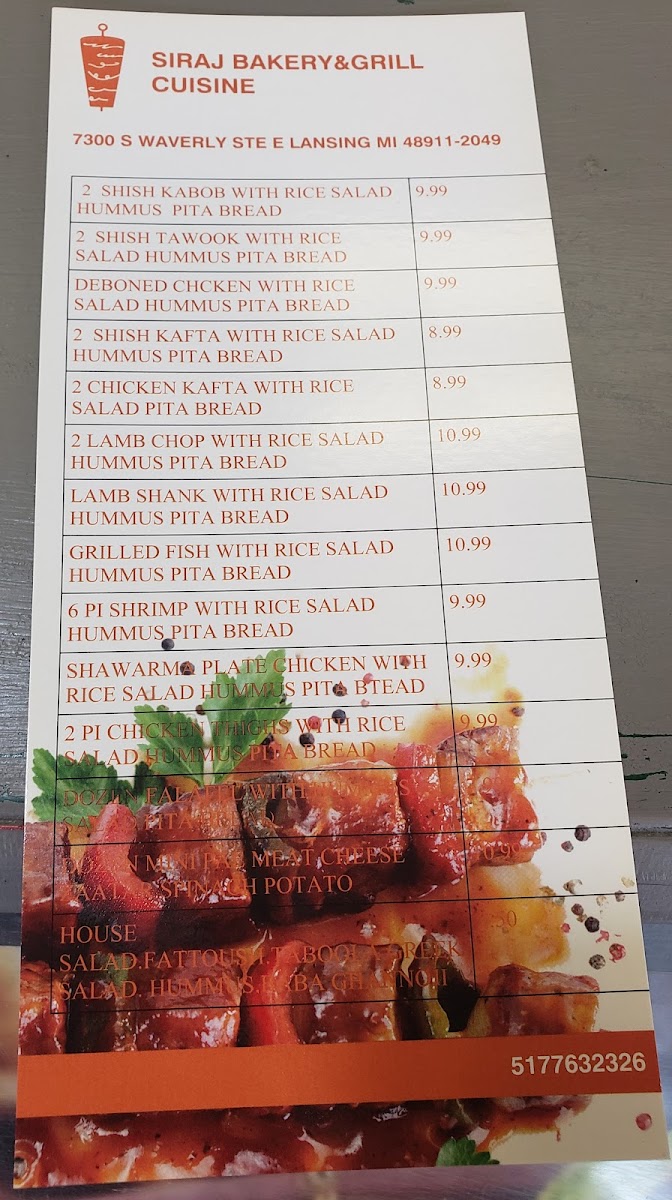 SIRAJ BAKERY&GRILL
CUISINE
7300 S WAVERLY STE E LANSING MI 48911-2049
2 SHISH KABOB WITH RICE SALAD
HUMMUS PITA BREAD
9.99
2 SHISH TAWOOK WITH RICE
SALAD HUMMUS PITA BREAD
9.99
DEBONED CHCKEN WITH RICE
SALAD HUMMUS PITA BREAD
9.99
2 SHISH KAFTA WITH RICE SALAD
HUMMUS PITA BREAD
8.99
2 CHICKEN KAFTA WITH RICE
SALAD PITA BREAD
8.99
2 LAMB CHOP WITH RICE SALAD
HUMMUS PITA BREAD
10.99
LAMB SHANK WITH RICE SALAD
HUMMUS PITA BREAD
10.99
GRILLED FISH WITH RICE SALAD
HUMMUS PITA BREAD
10.99
6 PI SHRIMP WITH RICE SALAD
HUMMUS PITA BREAD
9.99
SHAWARMA PLATE CHICKEN WITH
RICE SALAD HUMMUS PITA BTEAD
9.99
2 PI CHICKEN THIGHS WITH RICE
SALAD HUMMUS PITA BREAD
9.99
DOZEN FALAFEL WITH
PITA
MINI MEAT CHEESE
SPINACH POTATO
HOUSE
SALAD.FATTOUSH.TABOOLA.GREEK
SALAD. HUMMUS.BABA GHANNOJI
5177632326